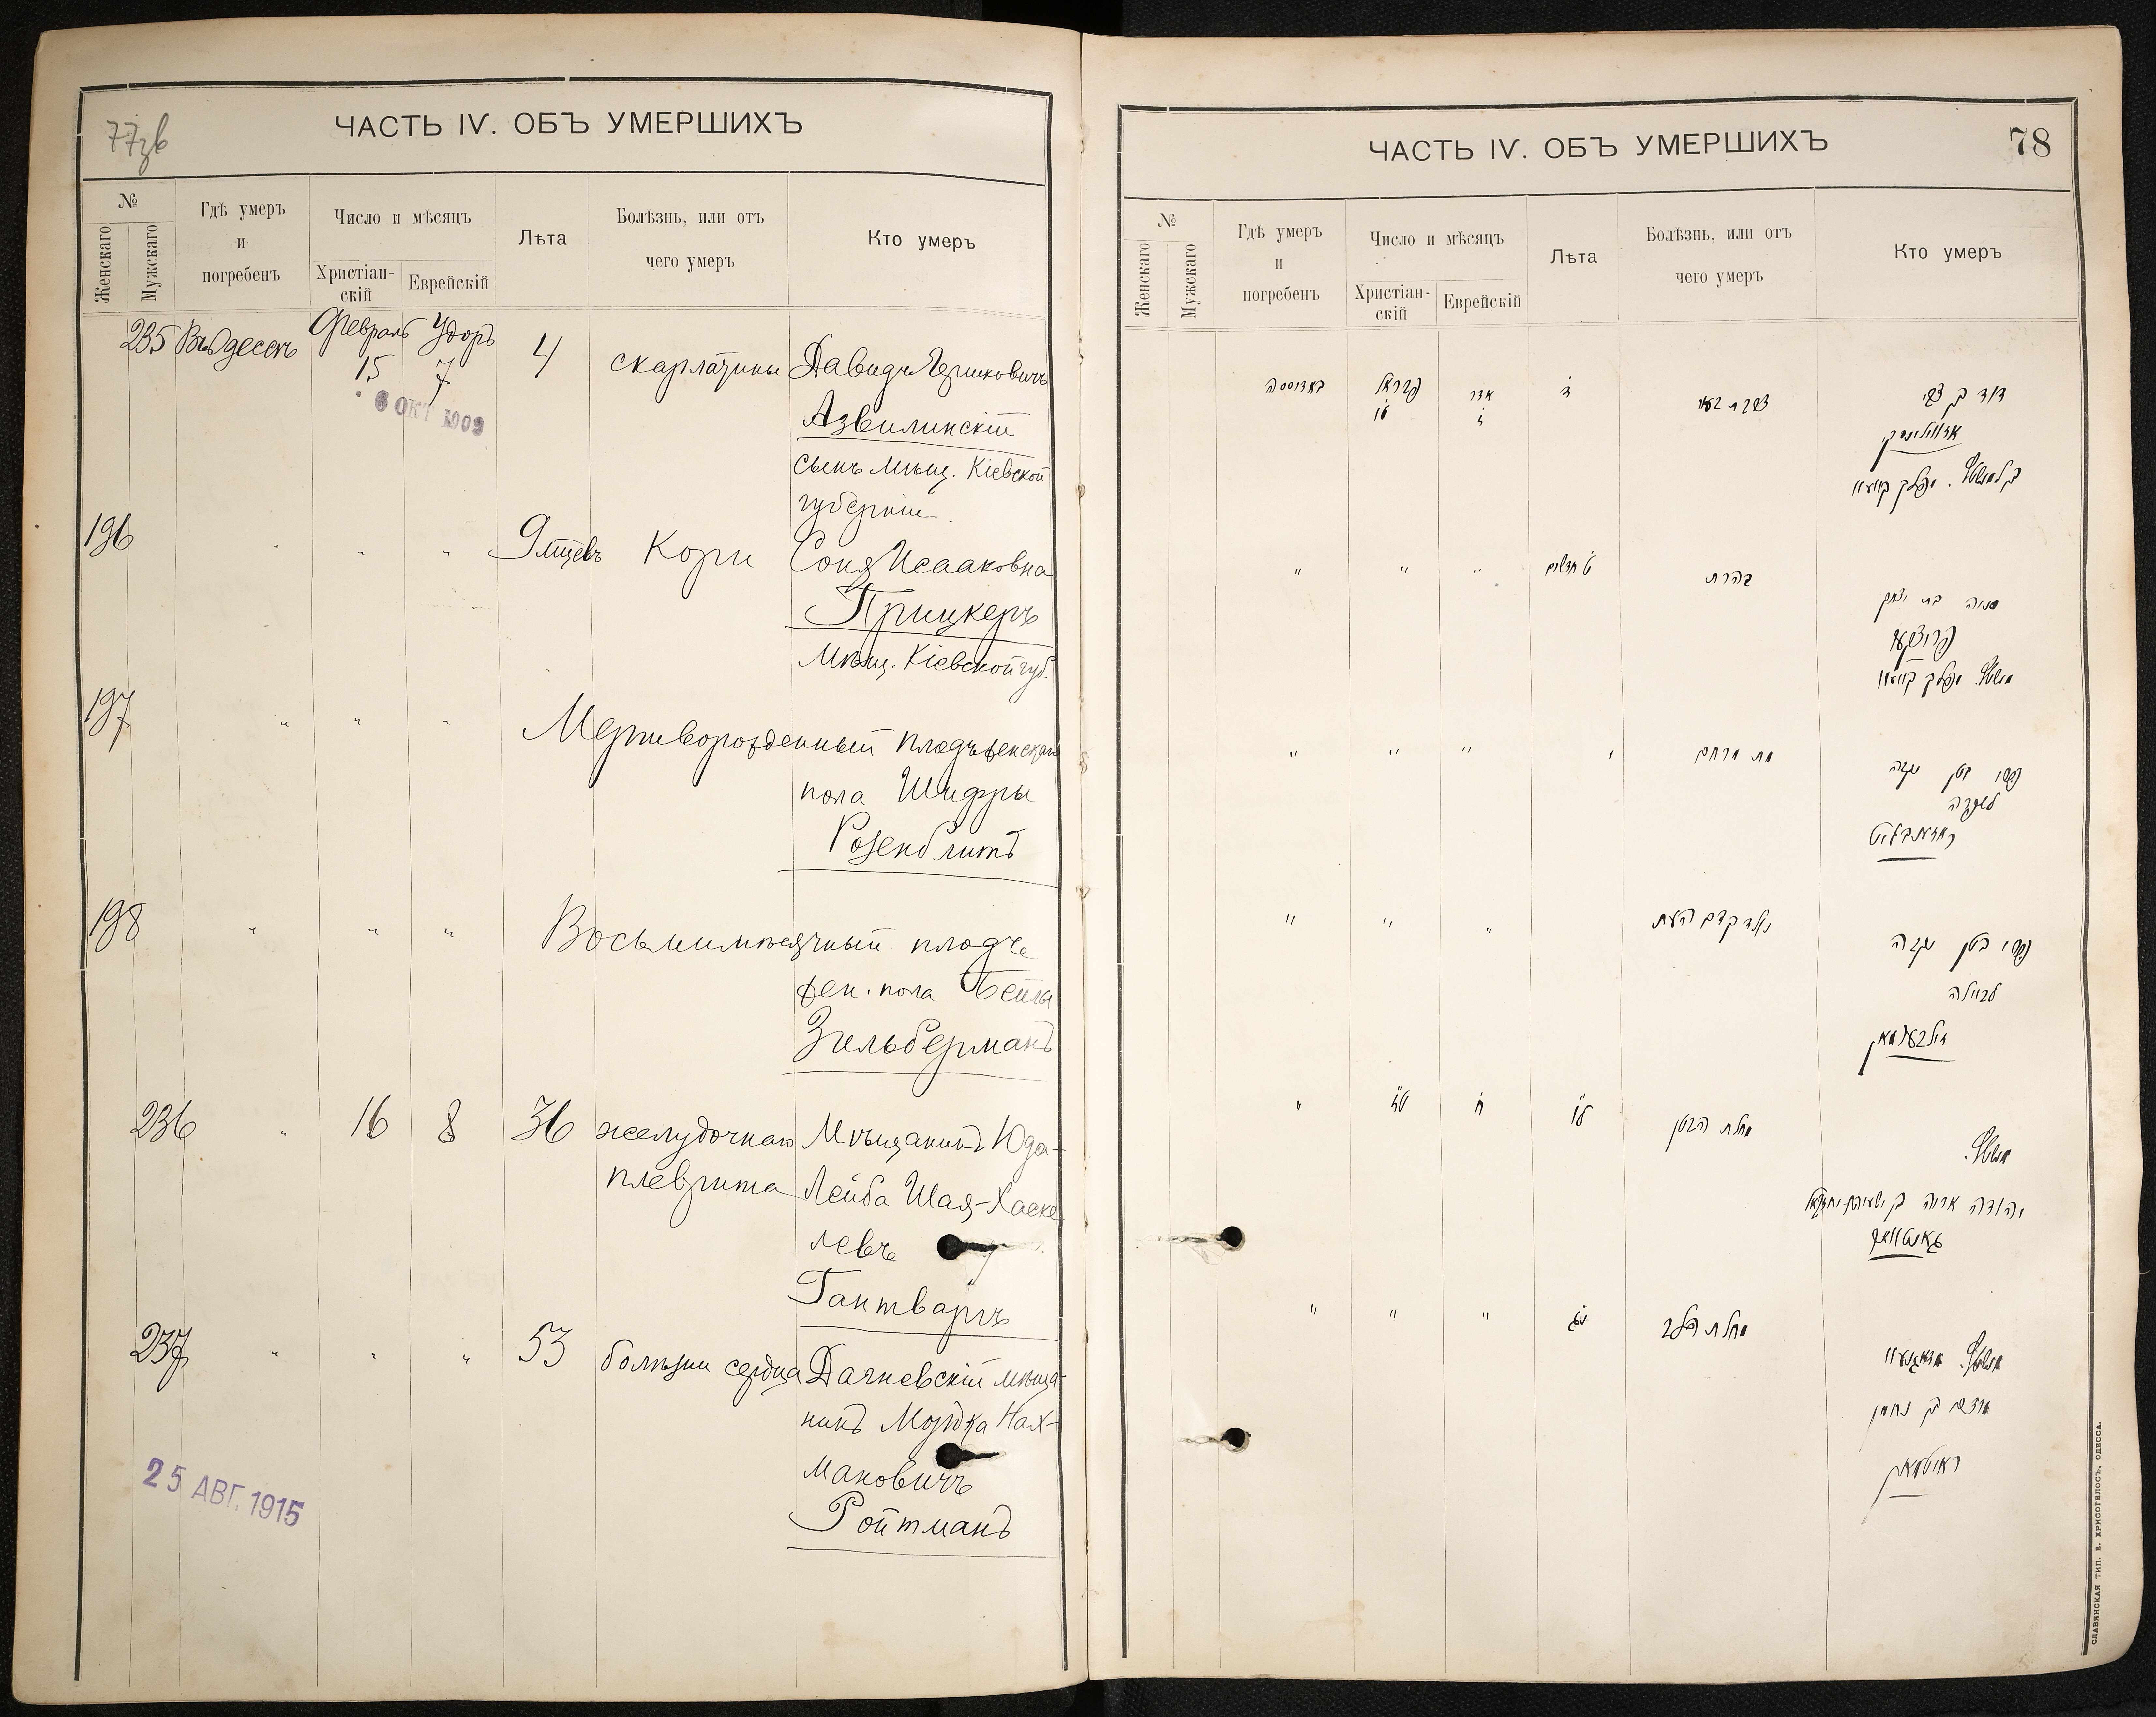 77зв
ЧАСТЬ IV. ОБЪ УМЕРШИХЪ
№
Женскаго
Мужскаго
Гдѣ умеръ
и
погребенъ
Число и мѣсяцъ
Христіан-
скій
Еврейскій
Лѣта
Болѣзнь, или отъ
чего умеръ
Кто умеръ
235 Въ Одессѣ Февраль 15 Адоръ 7 4 скарлатины Давидъ Гершковичъ
6 ОКТ 1909
Азвилинскій
сынъ мѣщ. Кіевской
губерніи
196 " " " 9 мѣсцевъ Кори Соня Исааковна
Прицкеръ
Мѣщ. Кіевской губ.
197 " " " Мертворожденный плодъ женскаго
пола Шифры
Розенблитъ
198 " " " Восьмимѣсячный плодъ
жен. пола Бейлы
Зильберманъ
236 " 16 8 36 желудочнаго Мѣщанинъ Юда-
плеврита Лейба Шая-Хаске
левъ
Гантваргъ
237 " " " 53 болѣзни сердца Дачневскій мѣща-
нинъ Мордка Нах-
мановичъ
Ройтманъ
25 АВГ. 1915
ЧАСТЬ IV. ОБЪ УМЕРШИХЪ
78
№
Женскаго
Мужскаго
Гдѣ умеръ
и
погребенъ
Число и мѣсяцъ
Христіан-
скій
Еврейскій
Лѣта
Болѣзнь, или отъ
чего умеръ
Кто умеръ
באדעססה פברואל טו אדר ז ד דוד בן צבי
" " " ט חדשים סוניה בת יצחק
" " " נפש בטן נקבה
לשפרה
ראזענבליט
" " " נולד קדם העת נפש בטן נקבה
לביילה
זילבערמאן
" טז ח לו מחלת הבטן
יהודה אריה בן ישעיה יחזקאל
" " " נג מחלת הלב
מרדכי בן נחמן
ראיטמאן
СЛАВЯНСКАЯ ТИП. Е. ХРИСОГЕЛОСЪ, ОДЕССА.